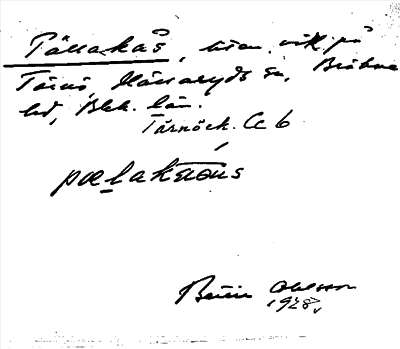 Pällakås, liten vik på
Tärnö, Hällaryds sn, Bräkne
hd, Blek. län.
Tärnöck. Cc 6
pælakåus
Bertil Ohlsson
1928.